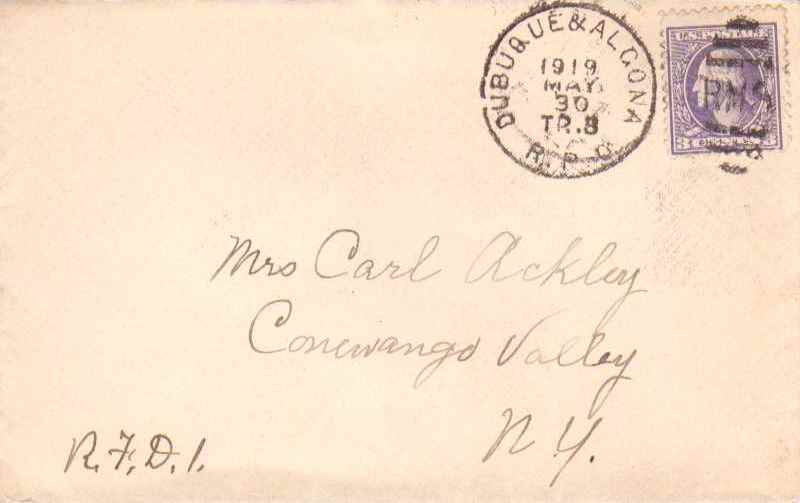 DUBUQUE & ALGONA
1919
MAY
30
TR.8
R.P.O.
U.S. POSTAGE
RMS
3
Mrs Carl Ackley
Conewango Valley
N.Y.
R.F.D.1.